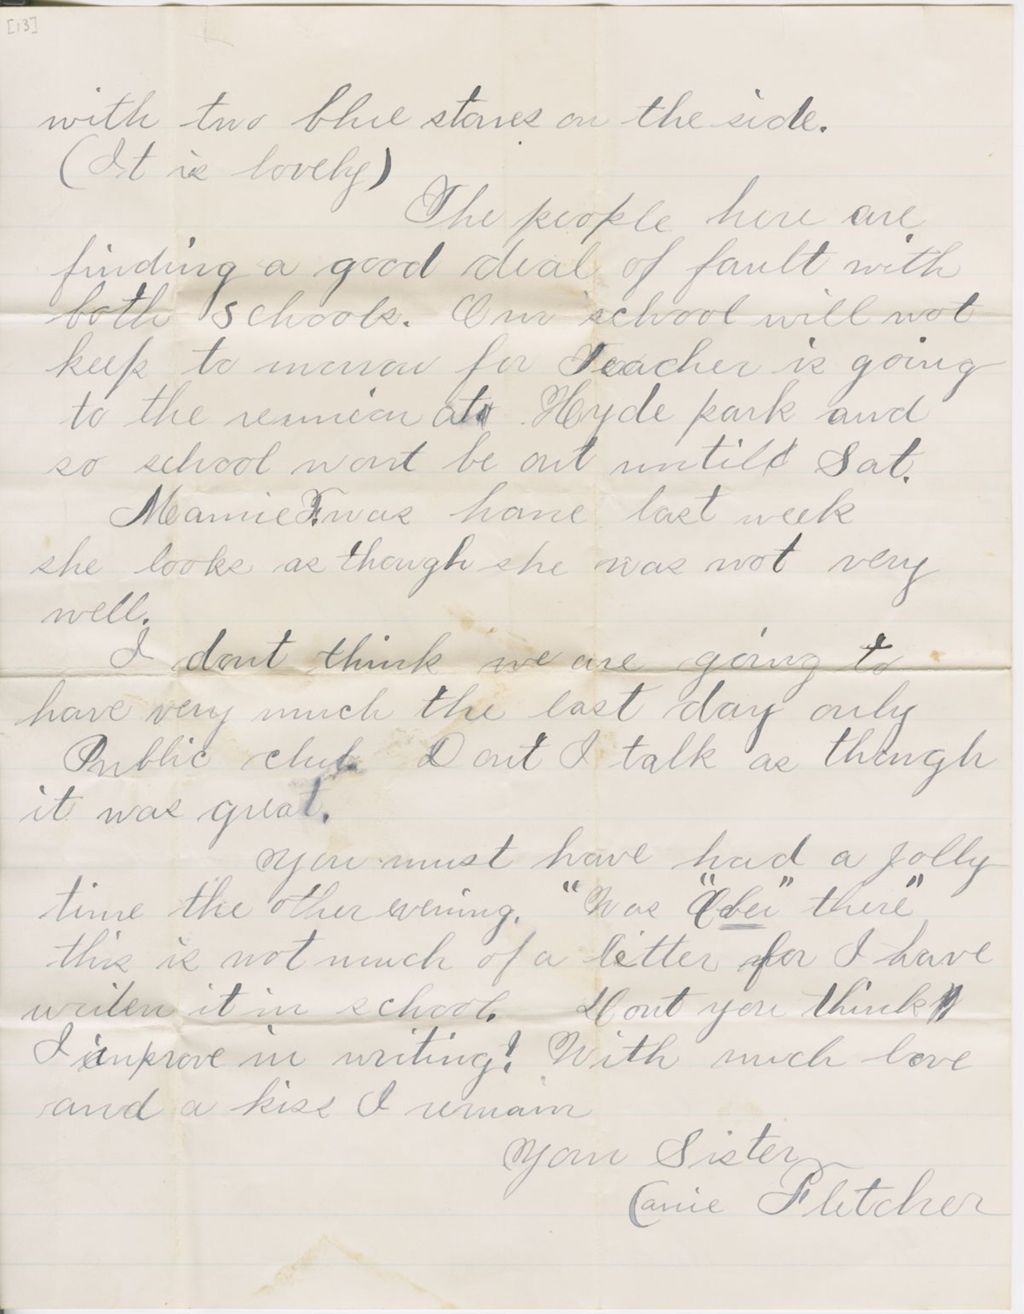 [13]
with two blue stones on the side.
(It is lovely)
The people here are
finding a good deal of fault with
both schools. Our school will not
keep to morrow for Teacher is going
to the reunion at Hyde park and
so school wont be out untill Sat.
Mamie F. was home last week
she looks as though she was not very
well.
I dont think we are going to
have very much the last day only
Public club Dont I talk as though
it was great.
You must have had a jolly
time the other evening. "Was "" there"
this is not much of a letter for I have
writen it in school. Dont you think
I improve in writing! With much love
and a kiss I remain
Your Sister
Carrie Fletcher